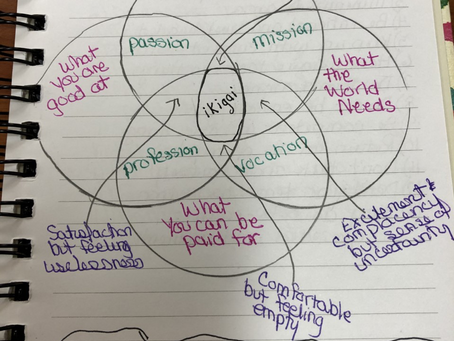 passion
mission
What
you are
good at
What
the
World
Needs
ikigai
profession
vocation
What
You can be
paid for
Satisfaction
but feeling
uselessness
Excitement &
complacency
but sense of
uncertainty
Comfortable
but feeling
empty